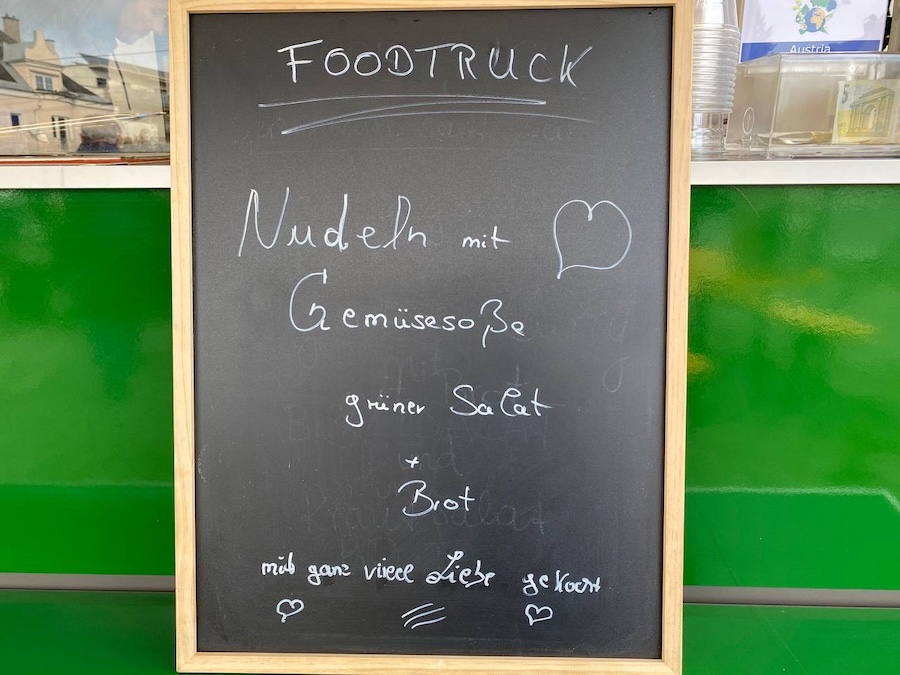 Austria
5
FOODTRUCK
Nudeln mit
Gemüsesoße
grüner Salat
+
Brot
mit ganz viiiel Liebe gekocht